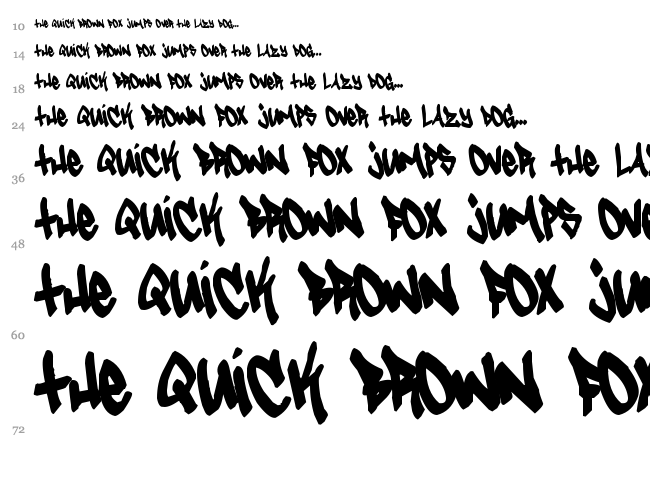 10 tHE QUiCK BROWN FOX jUMPS OVER tHE LAZY DOG...
14 tHE QUiCK BROWN FOX jUMPS OVER tHE LAZY DOG...
18 tHE QUiCK BROWN FOX jUMPS OVER tHE LAZY DOG...
24 tHE QUiCK BROWN FOX jUMPS OVER tHE LAZY DOG...
36 tHE QUiCK BROWN FOX jUMPS OVER tHE LA
48 tHE QUiCK BROWN FOX jUMPS OVE
60 tHE QUiCK BROWN FOX jU
72 tHE QUiCK BROWN FOX